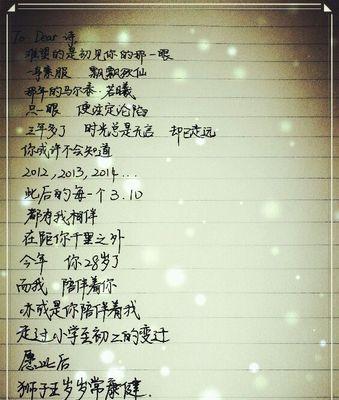 To Dear 诗
难忘的是初见你的那一眼
一身素服 飘飘欲仙
那年的马尔泰·若曦
只一眼 便注定沦陷
三年多了 时光总是无言 却已走远
你或许不会知道
2012,2013,2014...
此后的每一个3.10
都有我相伴
在距你千里之外
今年 你28岁了
而我 陪伴着你
亦或是你陪伴着我
走过小学至初二的变迁
愿此后
狮子王岁岁常康健.